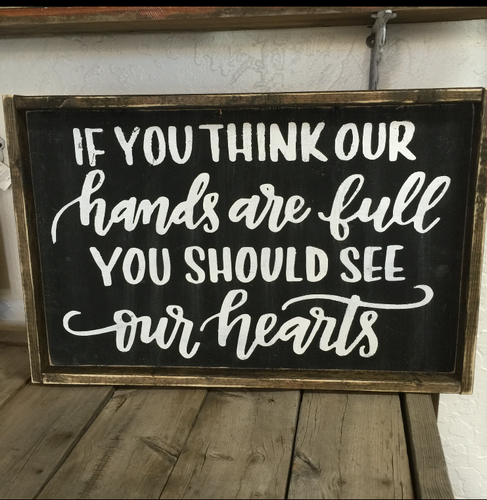 IF YOU THINK OUR
hands are full
YOU SHOULD SEE
our hearts